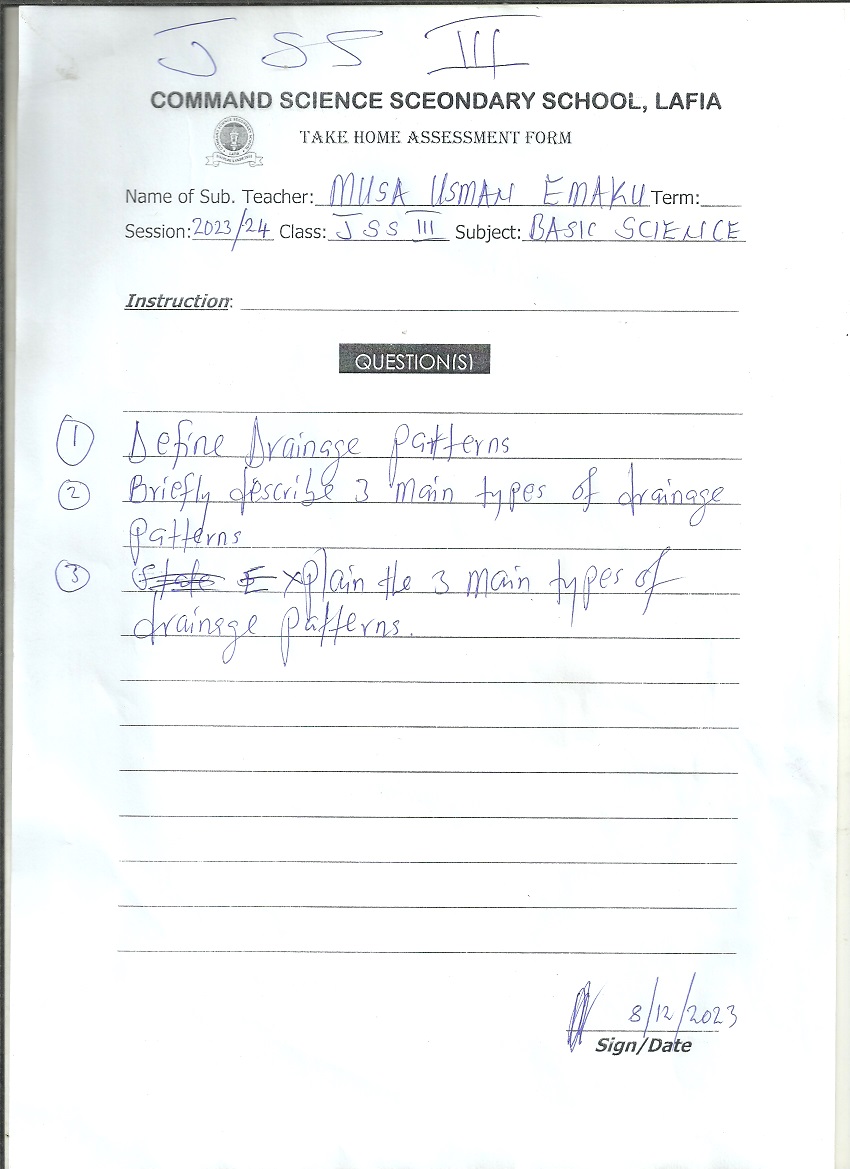 JSS III
COMMAND SCIENCE SCEONDARY SCHOOL, LAFIA
TAKE HOME ASSESSMENT FORM
Name of Sub. Teacher: MUSA USMAN EMAKU Term:
Session: 2023/24 Class: JSS III Subject: BASIC SCIENCE
Instruction:
QUESTION(S)
1 Define Drainage patterns
2 Briefly describe 3 main types of drainage
patterns
3 State Explain the 3 main types of
drainage patterns.
8/12/2023
Sign/Date